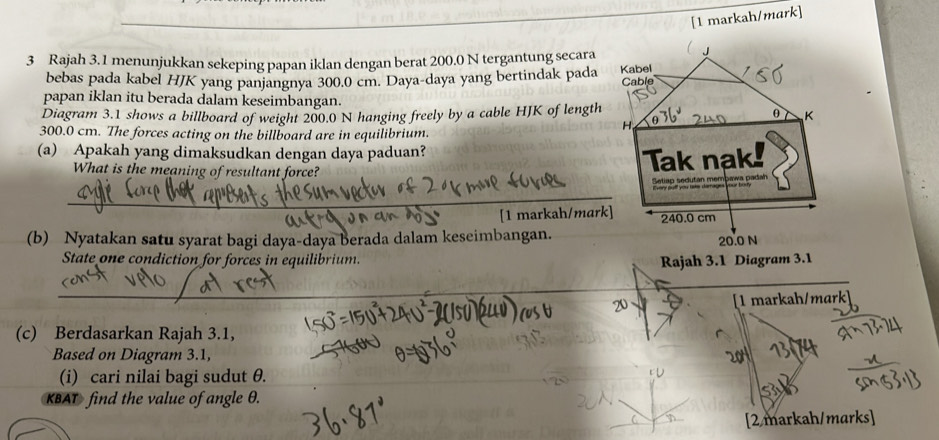 [1 markah/mark]
3 Rajah 3.1 menunjukkan sekeping papan iklan dengan berat 200.0 N tergantung secara
bebas pada kabel HJK yang panjangnya 300.0 cm. Daya-daya yang bertindak pada
papan iklan itu berada dalam keseimbangan.
Diagram 3.1 shows a billboard of weight 200.0 N hanging freely by a cable HJK of length
300.0 cm. The forces acting on the billboard are in equilibrium.
(a) Apakah yang dimaksudkan dengan daya paduan?
What is the meaning of resultant force?
force that represents the sum vector of 2 or more forces
[1 markah/mark]
(b) Nyatakan satu syarat bagi daya-daya berada dalam keseimbangan.
State one condiction for forces in equilibrium.
const velo / at rest
[1 markah/mark]
J
Kabel
Cable
150
150
H θ 36° 240 θ K
Tak nak!
Setiap sedutan membawa padah
Every puff you take damages your body
240.0 cm
20.0 N
Rajah 3.1 Diagram 3.1
(c) Berdasarkan Rajah 3.1,
Based on Diagram 3.1,
(i) cari nilai bagi sudut θ.
KBAT find the value of angle θ.
150²=150²+240²-2(150)(240)cos θ
36.87°
20
73.74
53.13
20
sin 73.74
x
sin 53.13
[2 markah/marks]